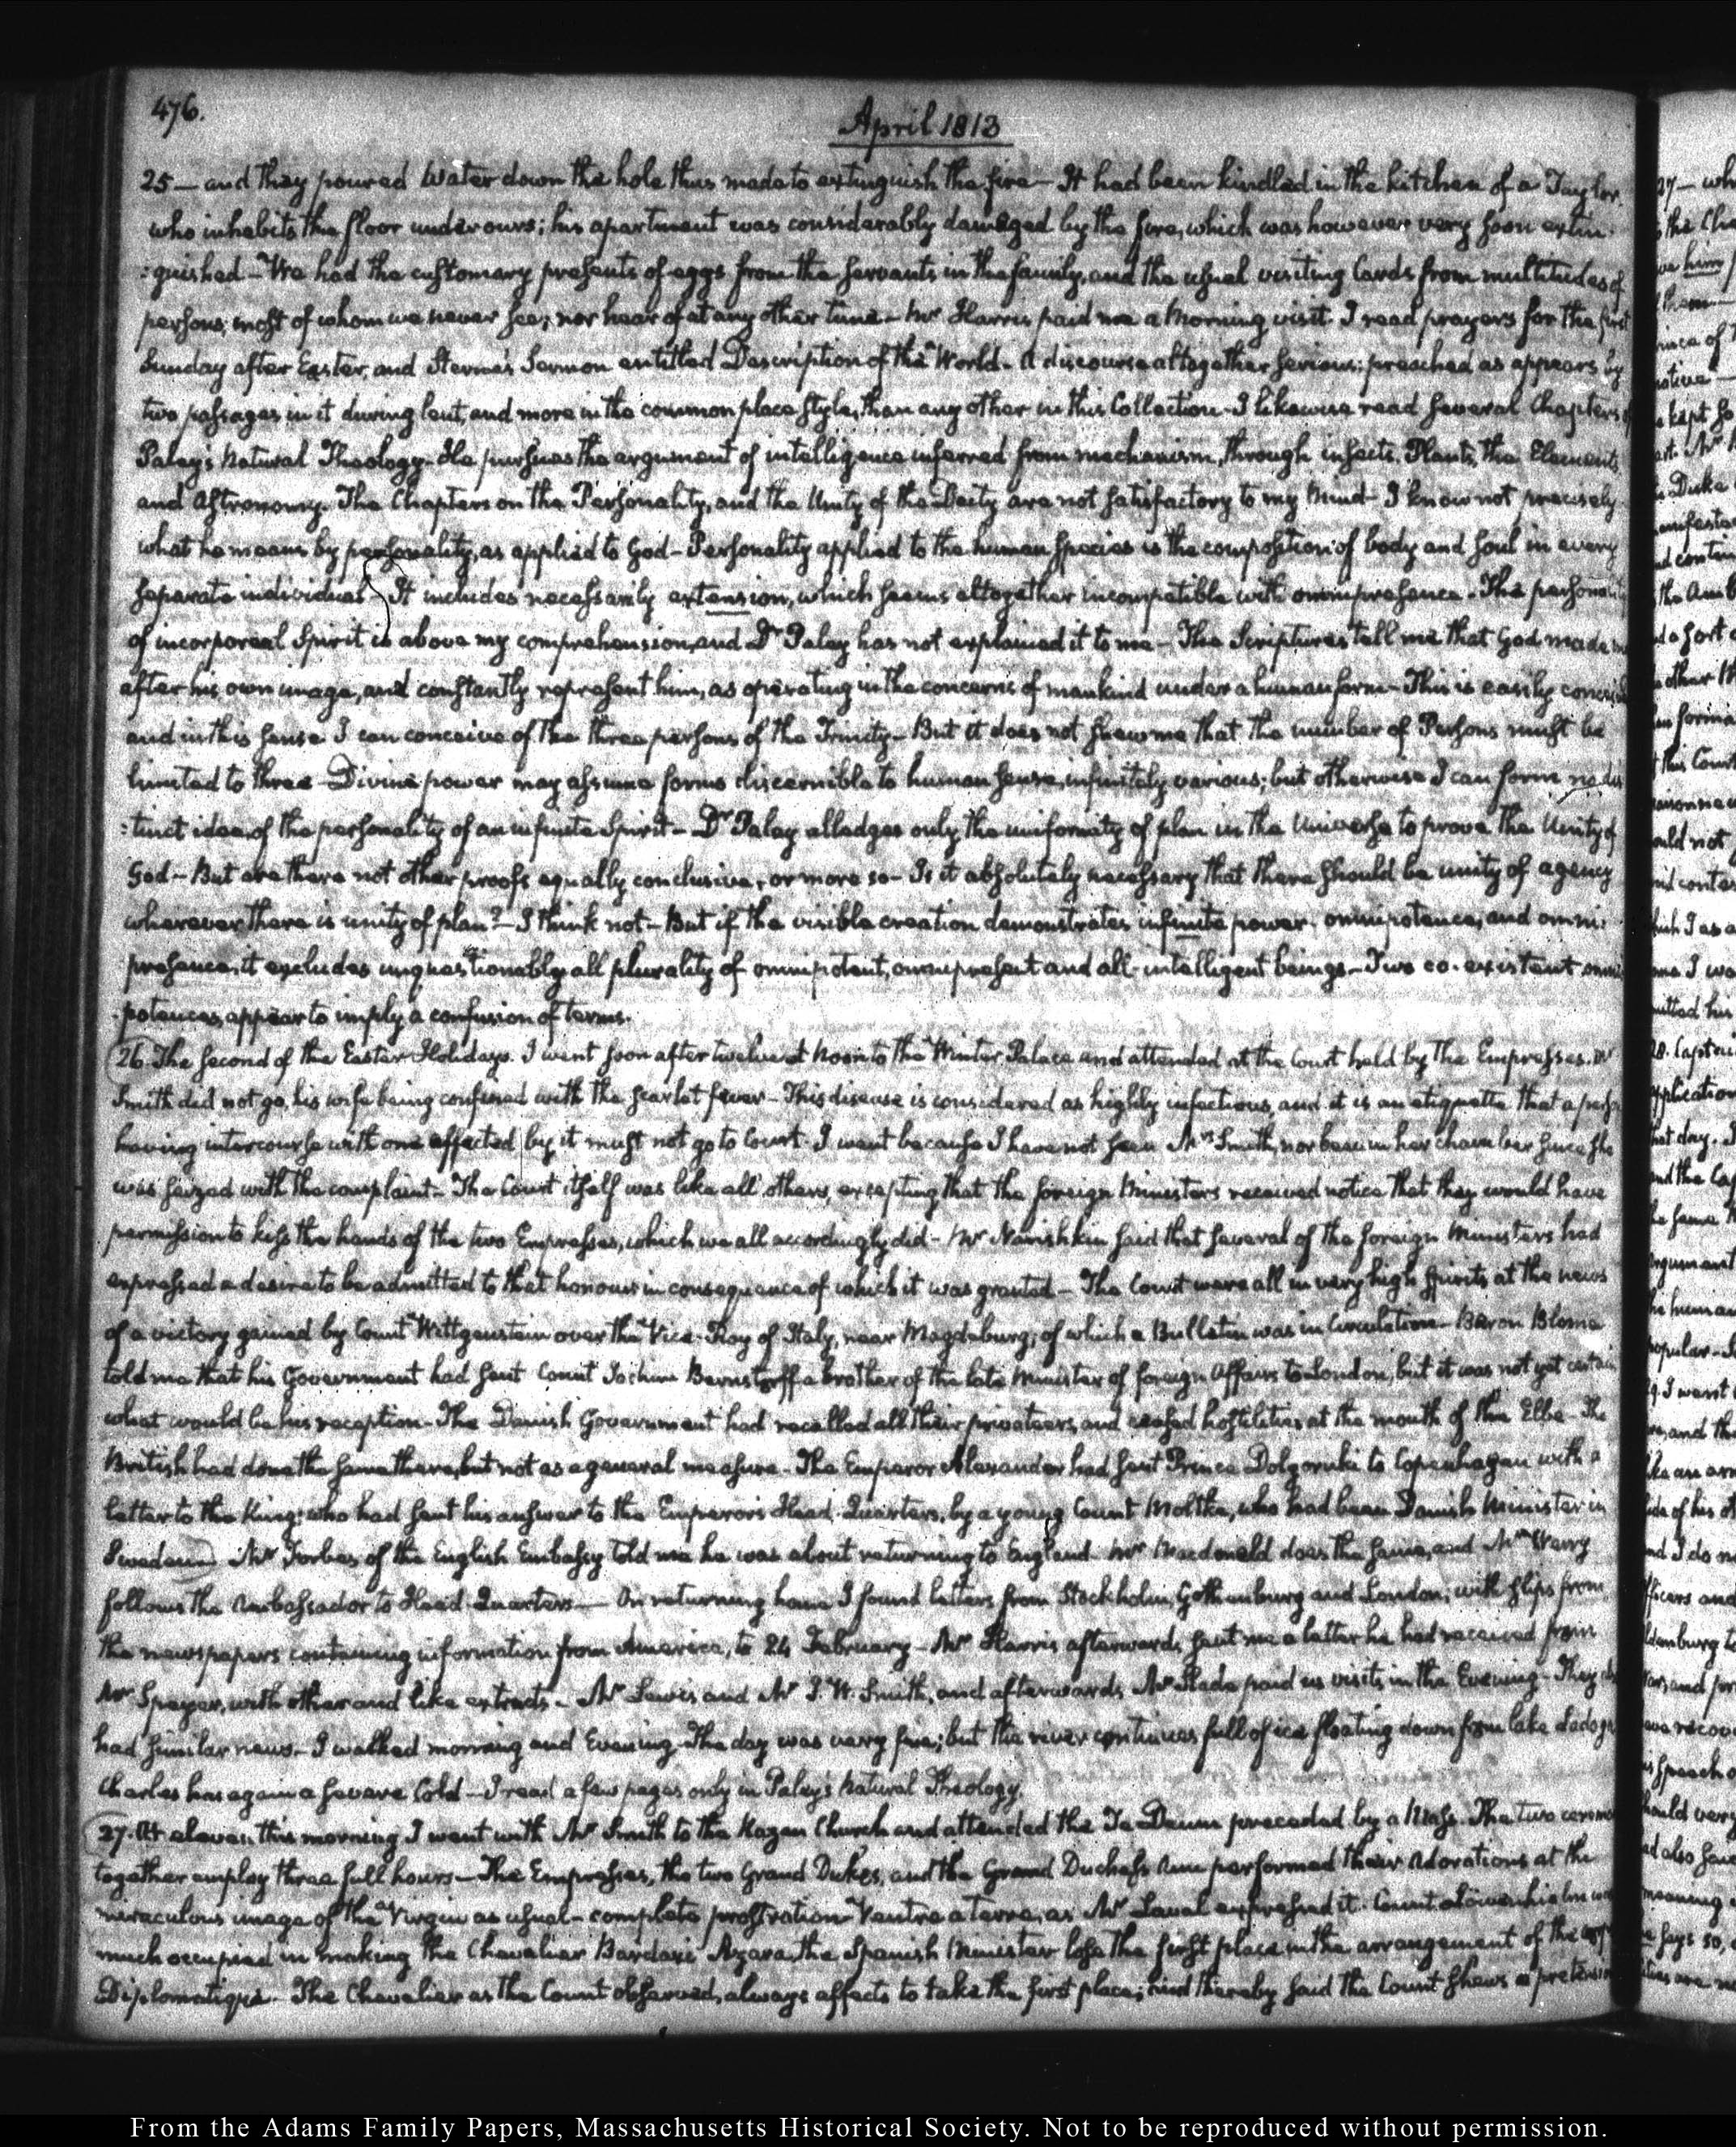 476.
April 1813
25 — and they poured Water down the hole thus made to extinguish the fire — It had been kindled in the kitchen of a Taylor,
who inhabits the floor under ours; his apartment was considerably damaged by the fire, which was however very soon extin:
:guished — We had the customary presents of eggs from the servants in the family, and the usual visiting Cards from multitudes of
persons, most of whom we never see, nor hear of at any other time — Mr Harris paid me a Morning visit. I read prayers for the first
Sunday after Easter, and Sterne's Sermon entitled Description of the World — A discourse altogether serious: preached as appears by
two passages in it during lent, and more in the common place style, than any other in this Collection — I likewise read several Chapters of
Paley's Natural Theology — He pursues the argument of intelligence inferred from mechanism, through insects, Plants, the Elements
and Astronomy. The Chapters on the Personality, and the Unity of the Deity are not satisfactory to my Mind — I know not precisely
what he means by personality, as applied to God — Personality applied to the human species is the composition of body and soul in every
separate individual — It includes necessarily extension, which seems altogether incompatible with omnipresence — The personality
of incorporeal Spirit is above my comprehension, and Dr Paley has not explained it to me — The Scriptures tell me that God made
after his own image, and constantly represent him, as operating in the concerns of mankind under a human form — This is easily conceived
and in this sense I can conceive of the three persons of the Trinity — But it does not shew me that the number of Persons must be
limited to three — Divine power may assume forms discernible to human sense, infinitely various; but otherwise I can form no dis
:tinct idea of the personality of an infinite Spirit — Dr Paley alledges only the uniformity of plan in the Universe to prove the Unity of
God — But are there not other proofs equally conclusive, or more so — Is it absolutely necessary that there should be unity of agency
wherever there is unity of plan? — I think not — But if the visible creation demonstrates infinite power, omnipotence, and omni:
presence, it excludes unquestionably all plurality of omnipotent, omnipresent and all-intelligent beings — Two co-existent omni
potences, appear to imply a confusion of terms.
26. The second of the Easter Holidays. I went soon after twelve at Noon to the Winter Palace and attended at the Court held by the Empresses. Mr
Smith did not go, his wife being confined with the scarlet fever — This disease is considered as highly infectious, and it is an etiquette that a person
having intercourse with one affected by it must not go to Court. I went because I have not seen Mrs Smith, nor been in her chamber since she
was seized with the complaint — The Court itself was like all others, excepting that the foreign Ministers received notice that they would have
permission to kiss the hands of the two Empresses, which we all accordingly did — Mr Narishkin said that several of the foreign Ministers had
expressed a desire to be admitted to that honour in consequence of which it was granted — The Court were all in very high spirits at the news
of a victory gained by Count Wittgenstein over the Vice-Roy of Italy, near Magdeburg; of which a Bulletin was in circulation — Baron Blome
told me that his Government had sent Count Joachim Bernstorff a brother of the late Minister of foreign Affairs to London, but it was not yet certain
what would be his reception — The Danish Government had recalled all their privateers, and ceased hostilities at the mouth of the Elbe — The
British had done the same there, but not as a general measure — The Emperor Alexander had sent Prince Dolgoruki to Copenhagen with a
letter to the King; who had sent his answer to the Emperor's Head-Quarters, by a young Count Moltke, who had been Danish Minister in
Sweden — Mr Forbes of the English Embassy told me he was about returning to England — Mr Macdonald does the same, and Mr Werry
follows the Ambassador to Head-Quarters — On returning home I found letters from Stockholm, Gothenburg and London, with slips from
the newspapers containing information from America, to 24 February — Mr Harris afterwards sent me a letter he had received from
Mr Speyer, with other and like extracts — Mr Lewis and Mr J. W. Smith, and afterwards Mr Slade paid us visits in the Evening — They
had similar news — I walked morning and Evening — The day was very fine; but the river continues full of ice floating down from lake Ladoga
Charles has again a severe Cold — I read a few pages only in Paley's Natural Theology.
27. At eleven this morning I went with Mr Smith to the Kazan Church and attended the Te Deum preceded by a Mass. The two
together employ three full hours — The Empresses, the two Grand Dukes, and the Grand Duchess Ann performed their adorations at the
miraculous image of the Virgin as usual — complete prostration Ventre a terre, as Mr Laval expressed it. Count Löwenhielm was
much occupied in making the Chevalier Bardaxi Azara, the Spanish Minister lose the first place in the arrangement of the Corps
Diplomatique — The Chevalier as the Count observed, always affects to take the first place; and thereby said the Count shews a pretension
From the Adams Family Papers, Massachusetts Historical Society. Not to be reproduced without permission.